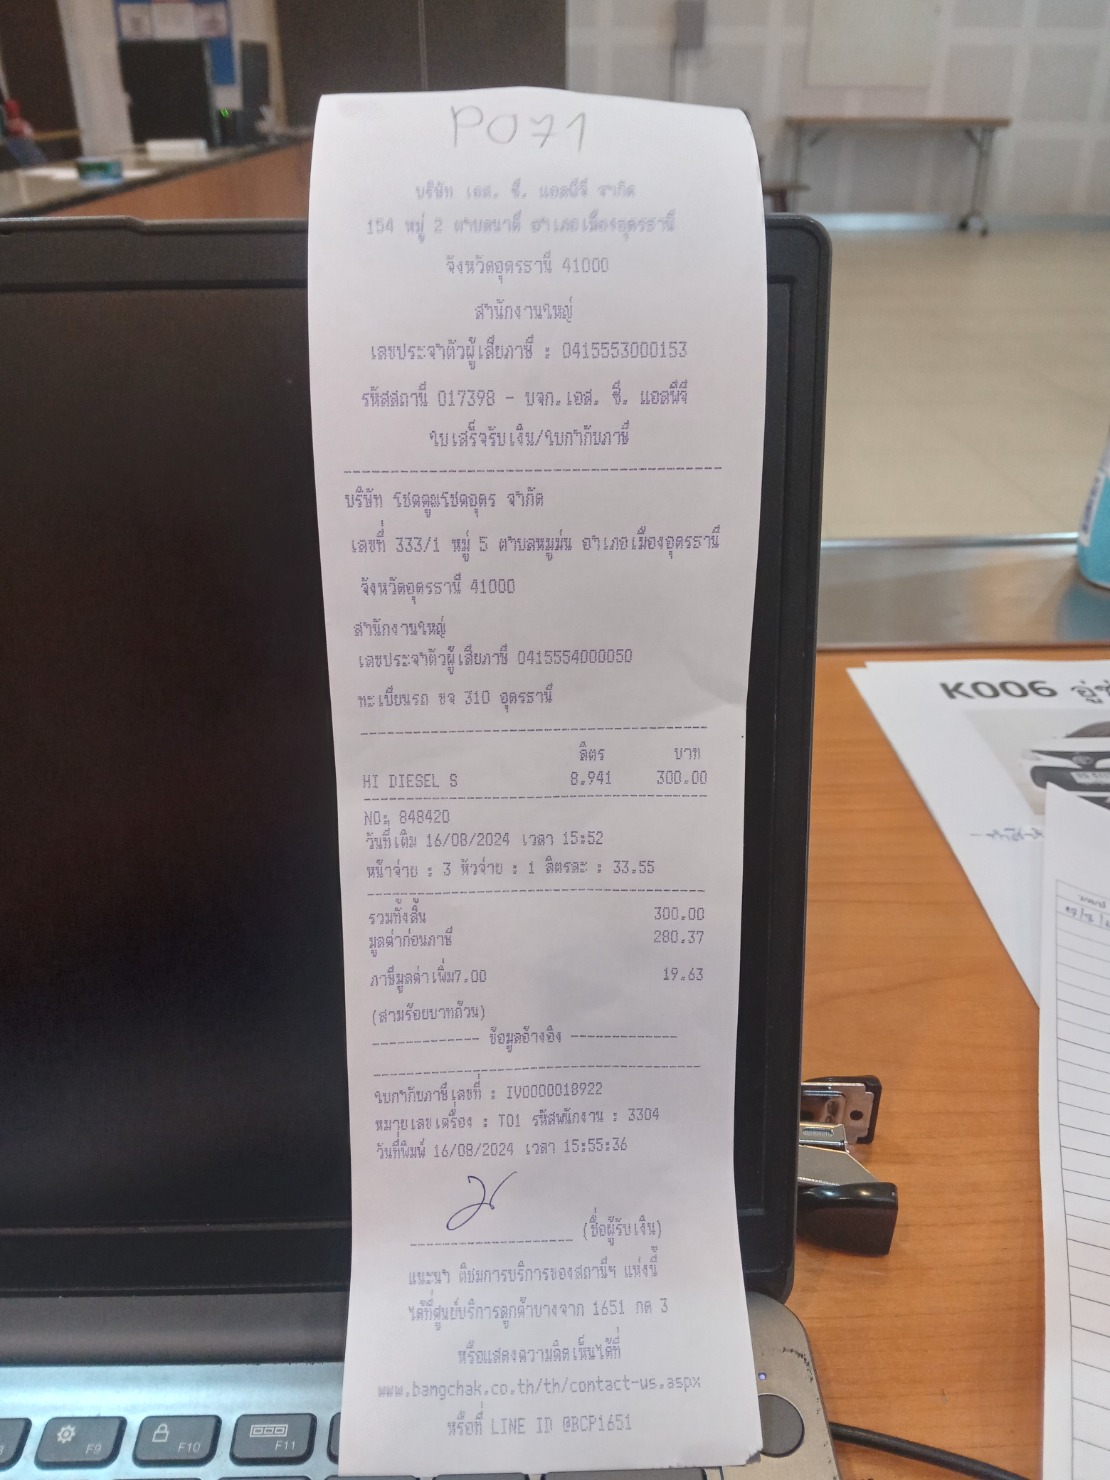 P071
บริษัท เอส. ซี. แอลพีจี จำกัด
154 หมู่ 2 ตำบลนาดี อำเภอเมืองอุดรธานี
จังหวัดอุดรธานี 41000
สำนักงานใหญ่
เลขประจำตัวผู้เสียภาษี : 0415553000153
รหัสสถานี 017398 - บจก.เอส. ซี. แอลพีจี
ใบเสร็จรับเงิน/ใบกำกับภาษี
บริษัท โชคคูณโชคอุดร จำกัด
เลขที่ 333/1 หมู่ 5 ตำบลหมูม่น อำเภอเมืองอุดรธานี
จังหวัดอุดรธานี 41000
สำนักงานใหญ่
เลขประจำตัวผู้เสียภาษี 0415554000050
ทะเบียนรถ ขจ 310 อุดรธานี
ลิตร บาท
HI DIESEL S 8.941 300.00
NO: 848420
วันที่เติม 16/08/2024 เวลา 15:52
หน้าจ่าย : 3 หัวจ่าย : 1 ลิตรละ : 33.55
รวมทั้งสิ้น 300.00
มูลค่าก่อนภาษี 280.37
ภาษีมูลค่าเพิ่ม7.00 19.63
(สามร้อยบาทถ้วน)
------------ ข้อมูลอ้างอิง ------------
ใบกำกับภาษีเลขที่ : IV0000018922
หมายเลขเครื่อง : T01 รหัสพนักงาน : 3304
วันที่พิมพ์ 16/08/2024 เวลา 15:55:36
(ชื่อผู้รับเงิน)
แนะนำ ติชมการบริการของสถานีฯ แห่งนี้
ได้ที่ศูนย์บริการลูกค้าบางจาก 1651 กด 3
หรือแสดงความคิดเห็นได้ที่
www.bangchak.co.th/th/contact-us.aspx
หรือที่ LINE ID @BCP1651
K006
F9
F10
F11